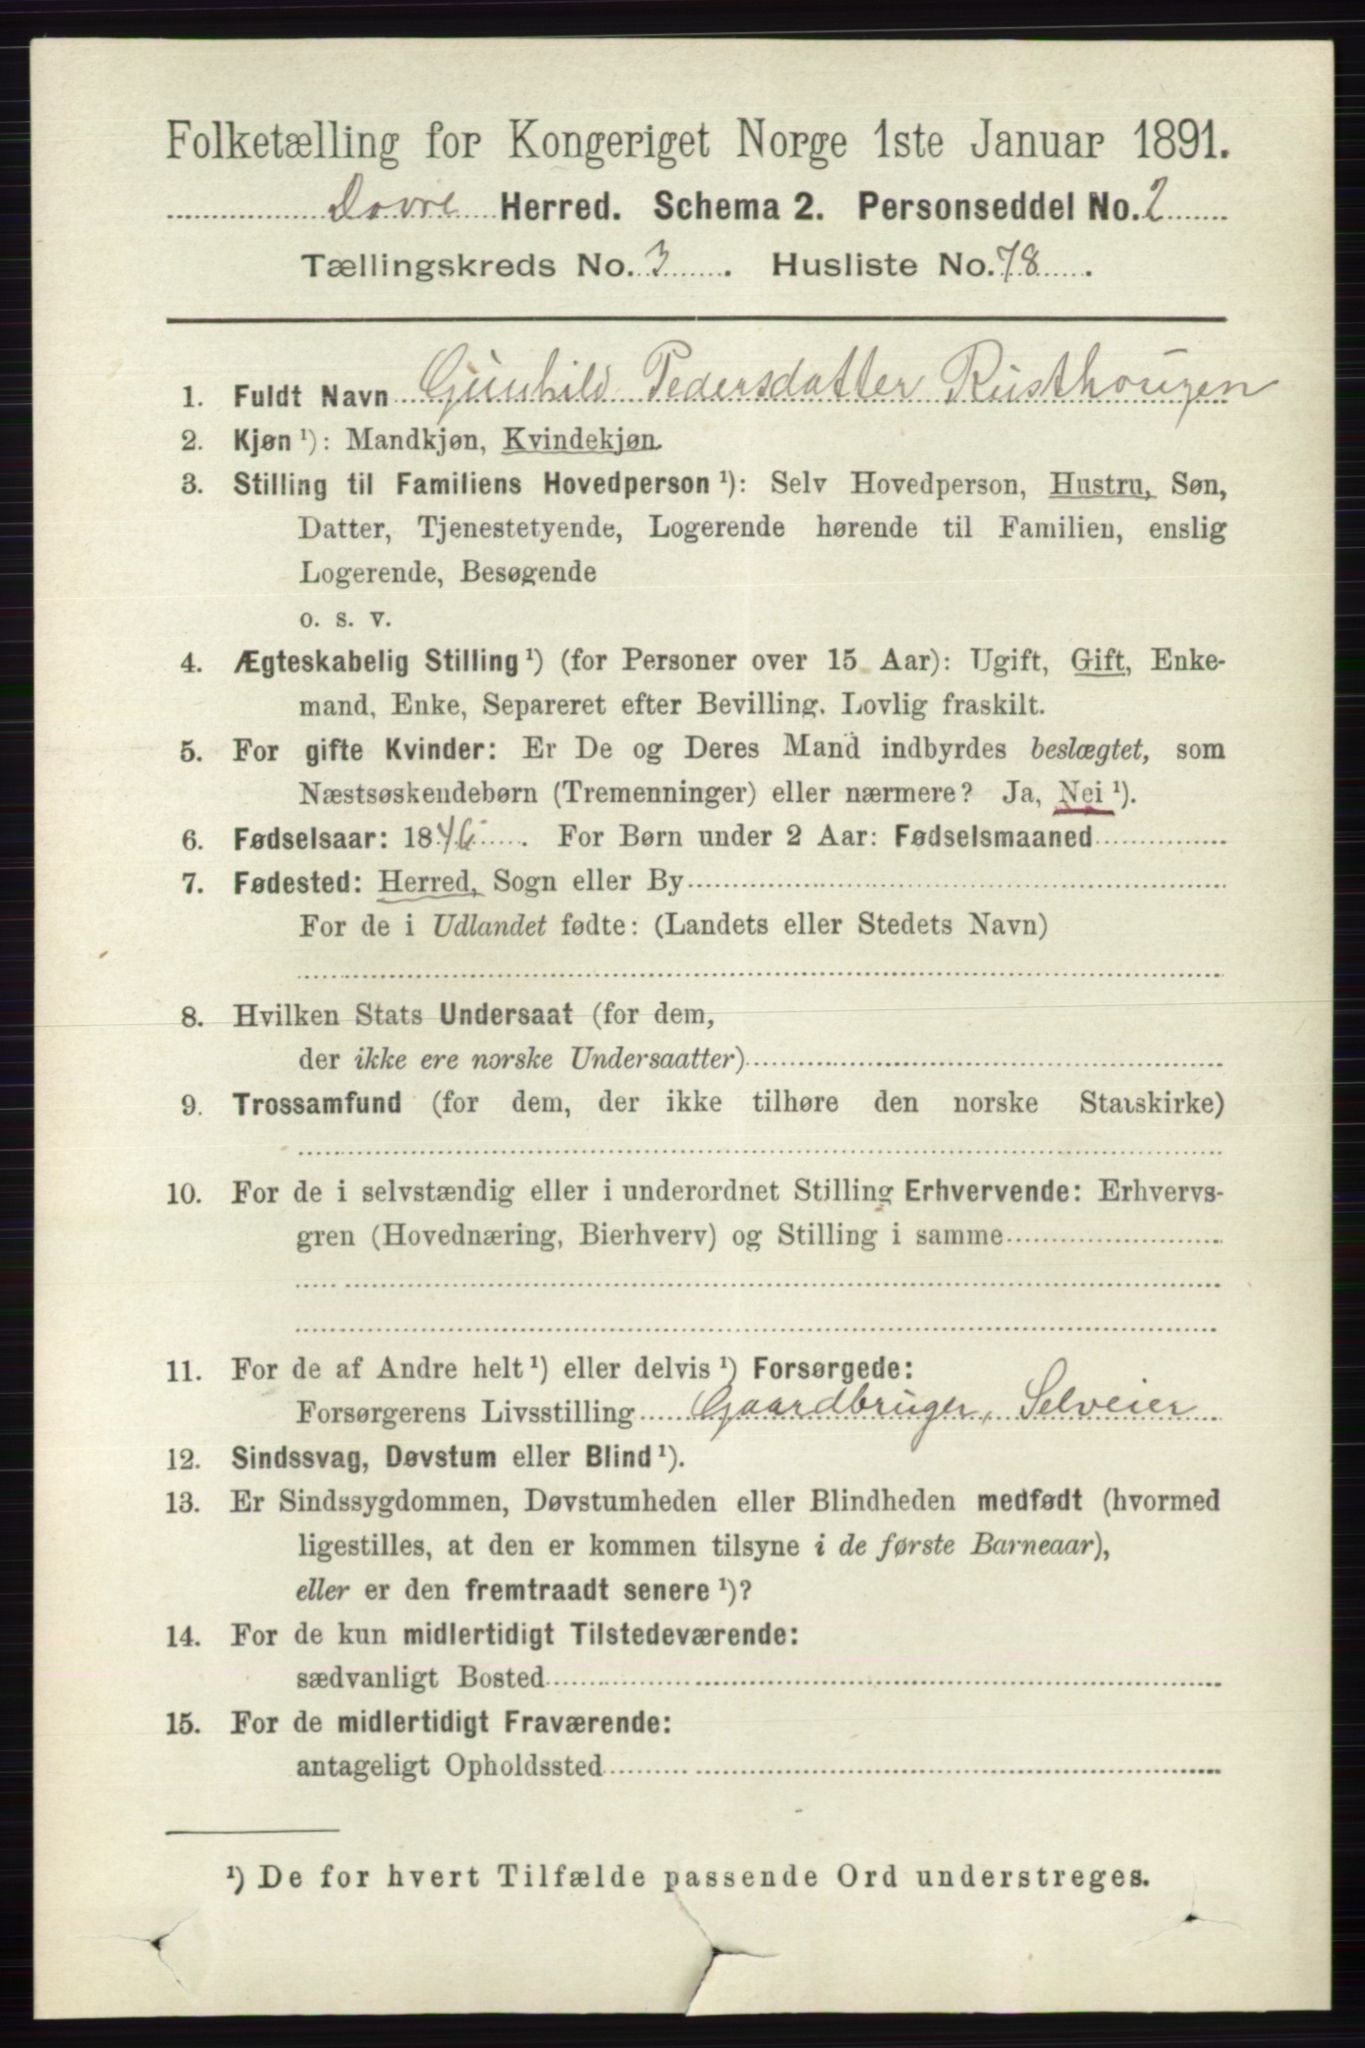 Folketælling for Kongeriget Norge 1ste Januar 1891.
Dovre Herred. Schema 2. Personseddel No. 2
Tællingskreds No. 3. Husliste No. 78.
1. Fuldt Navn Gunhild Pedersdatter Rusthougen
2. Kjøn ¹): Mandkjøn, Kvindekjøn.
3. Stilling til Familiens Hovedperson ¹): Selv Hovedperson, Hustru, Søn,
Datter, Tjenestetyende, Logerende hørende til Familien, enslig
Logerende, Besøgende
o. s. v.
4. Ægteskabelig Stilling ¹) (for Personer over 15 Aar): Ugift, Gift, Enke-
mand, Enke, Separeret efter Bevilling. Lovlig fraskilt.
5. For gifte Kvinder: Er De og Deres Mand indbyrdes beslægtet, som
Næstsøskendebørn (Tremenninger) eller nærmere? Ja, Nei ¹).
6. Fødselsaar: 1846. For Børn under 2 Aar: Fødselsmaaned
7. Fødested: Herred, Sogn eller By
For de i Udlandet fødte: (Landets eller Stedets Navn)
8. Hvilken Stats Undersaat (for dem,
der ikke ere norske Undersaatter)
9. Trossamfund (for dem, der ikke tilhøre den norske Statskirke)
10. For de i selvstændig eller i underordnet Stilling Erhvervende: Erhvervs-
gren (Hovednæring, Bierhverv) og Stilling i samme
11. For de af Andre helt ¹) eller delvis ¹) Forsørgede:
Forsørgerens Livsstilling Gaardbruger, Selveier
12. Sindssvag, Døvstum eller Blind ¹).
13. Er Sindssygdommen, Døvstumheden eller Blindheden medfødt (hvormed
ligestilles, at den er kommen tilsyne i de første Barneaar),
eller er den fremtraadt senere ¹)?
14. For de kun midlertidigt Tilstedeværende:
sædvanligt Bosted
15. For de midlertidigt Fraværende:
antageligt Opholdssted
¹) De for hvert Tilfælde passende Ord understreges.